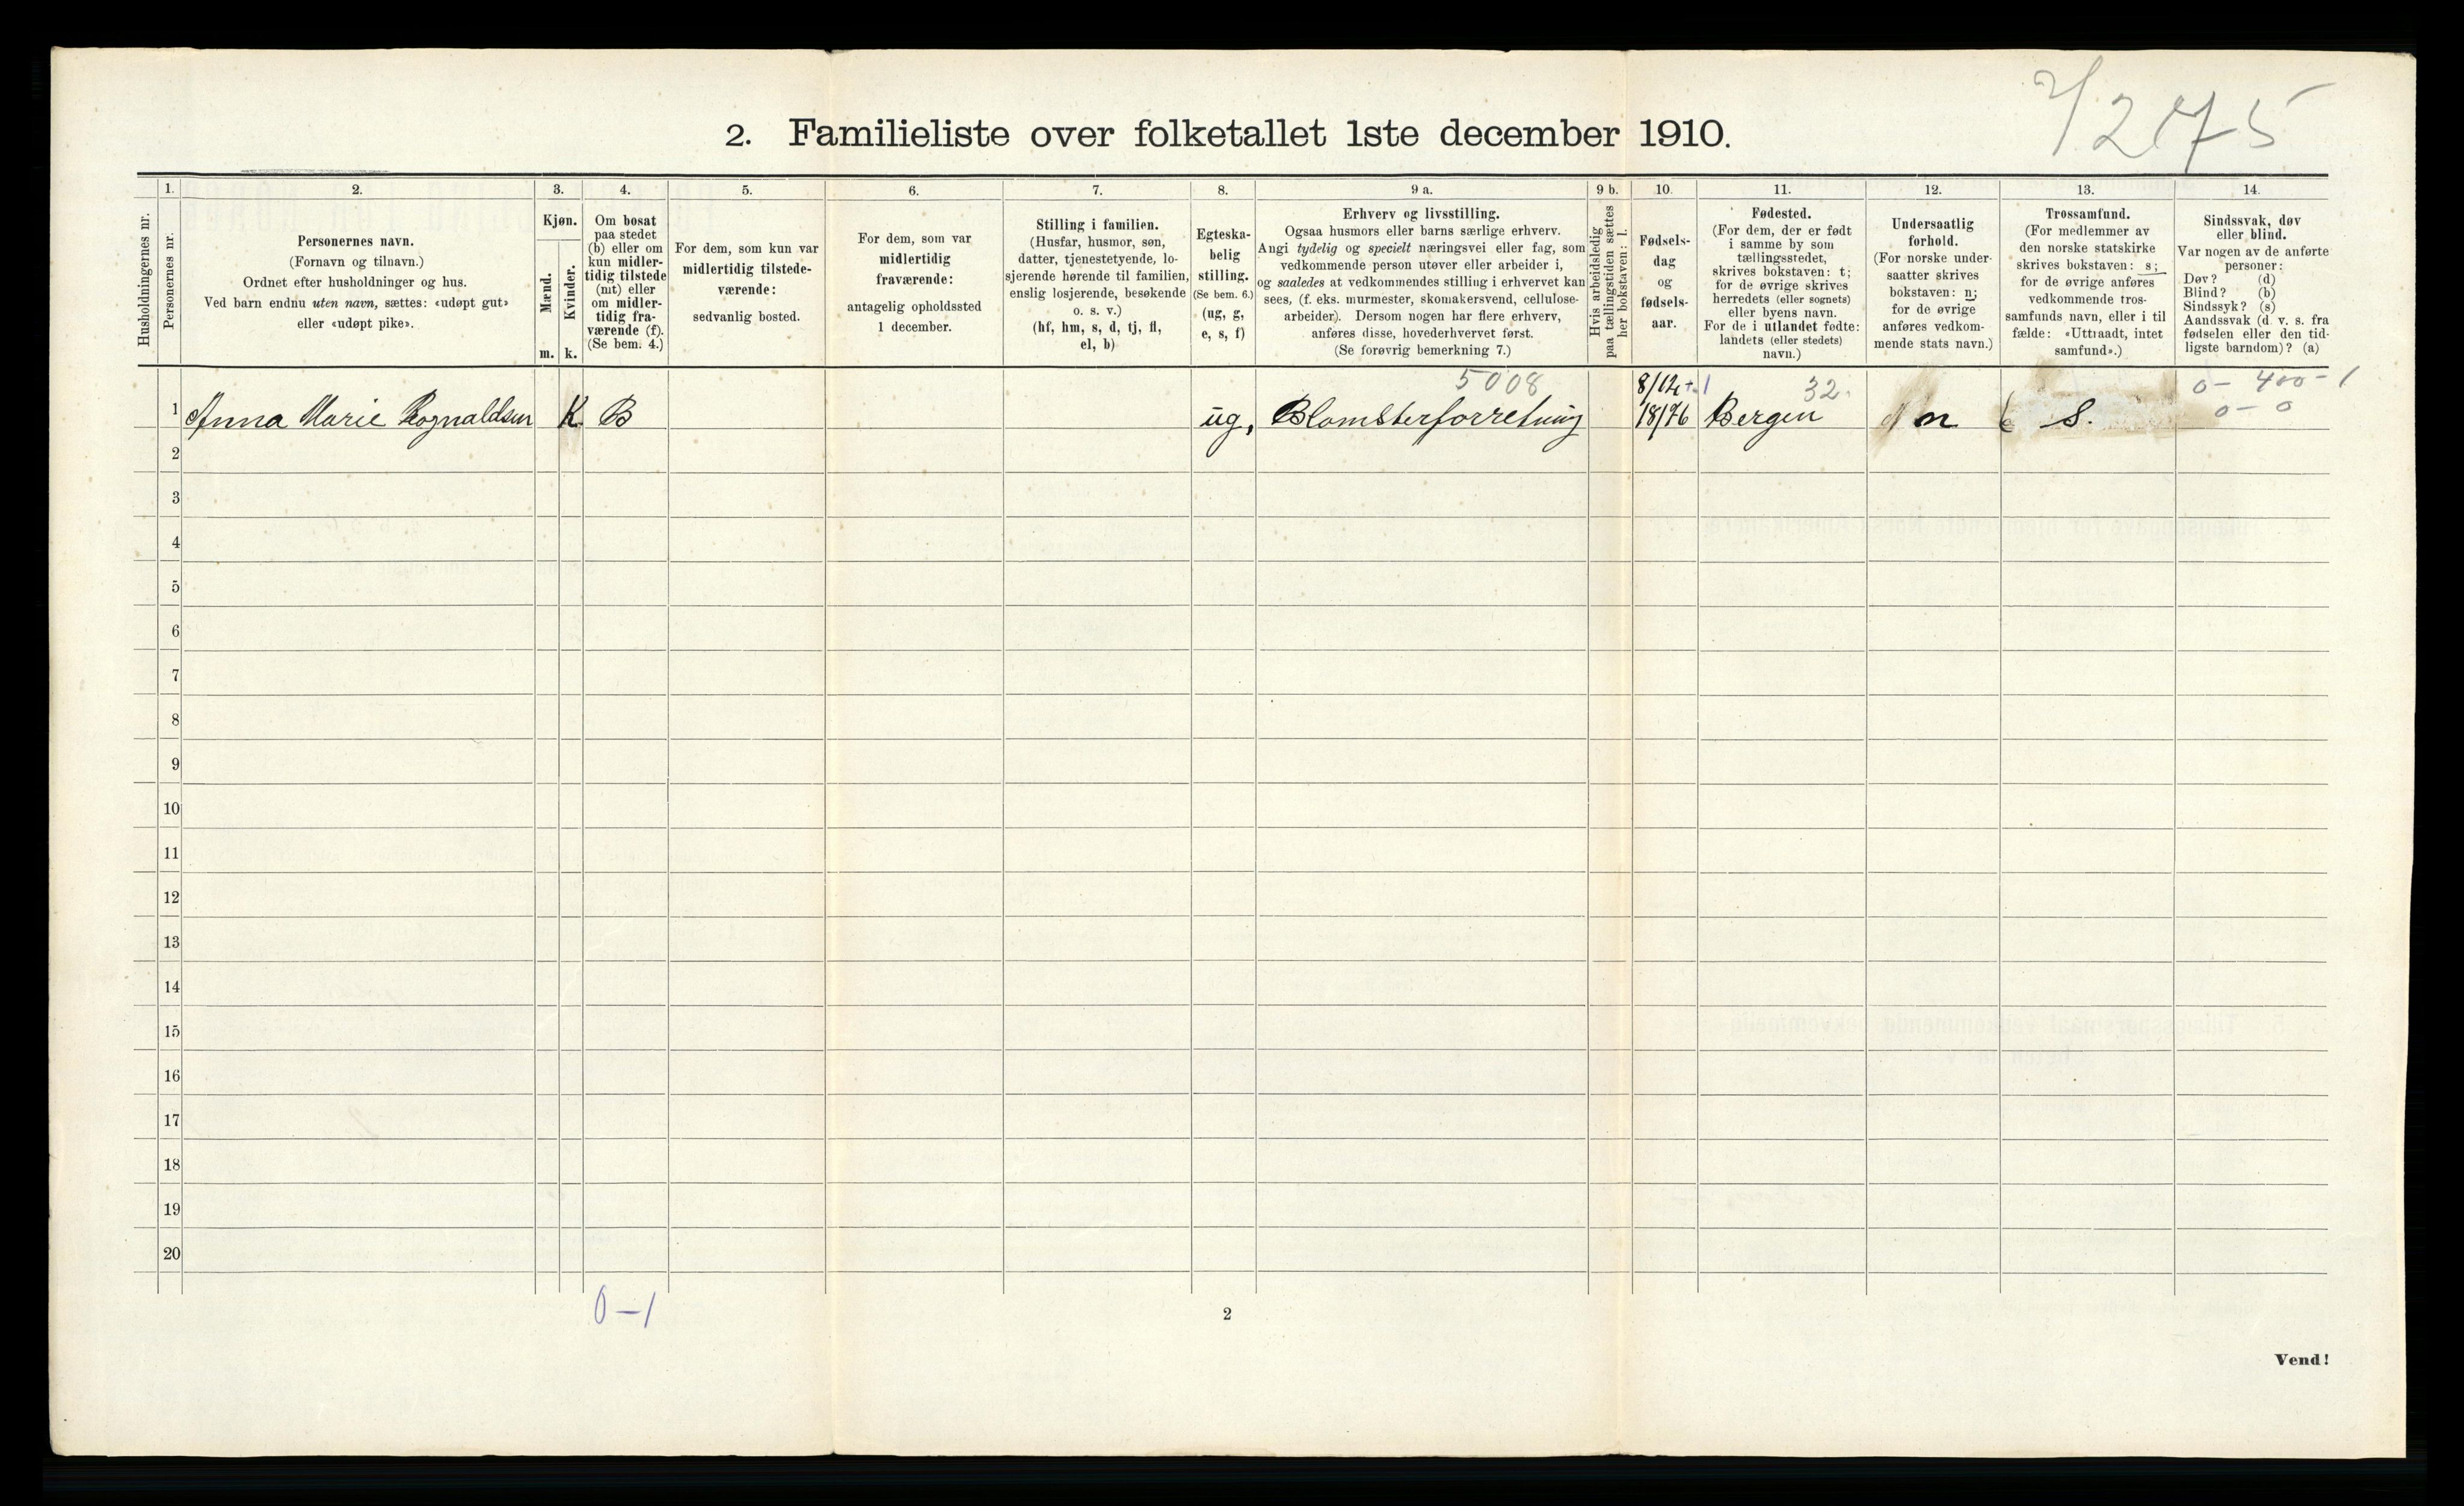 2/2175
2. Familieliste over folketallet 1ste december 1910.
Husholdningernes nr.
1.
Personernes nr.
2.
Personernes navn.
(Fornavn og tilnavn.)
Ordnet efter husholdninger og hus.
Ved barn endnu uten navn, sættes: «udøpt gut»
eller «udøpt pike».
3.
Kjøn.
Mænd.
Kvinder.
m. k.
4.
Om bosat
paa stedet
(b) eller om
kun midler-
tidig tilstede
(mt) eller
om midler-
tidig fra-
værende (f).
(Se bem. 4.)
5.
For dem, som kun var
midlertidig tilstede-
værende:
sedvanlig bosted.
6.
For dem, som var
midlertidig
fraværende:
antagelig opholdssted
1 december.
7.
Stilling i familien.
(Husfar, husmor, søn,
datter, tjenestetyende, lo-
sjerende hørende til familien,
enslig losjerende, besøkende
o. s. v.)
(hf, hm, s, d, tj, fl,
el, b)
8.
Egteska-
belig
stilling.
(Se bem. 6.)
(ug, g,
e, s, f)
9 a.
Erhverv og livsstilling.
Ogsaa husmors eller barns særlige erhverv.
Angi tydelig og specielt næringsvei eller fag, som
vedkommende person utøver eller arbeider i,
og saaledes at vedkommendes stilling i erhvervet kan
sees, (f. eks. murmester, skomakersvend, cellulose-
arbeider). Dersom nogen har flere erhverv,
anføres disse, hovederhvervet først.
(Se forøvrig bemerkning 7.)
9 b.
Hvis arbeidsledig
paa tællingstiden sættes
her bokstaven: l.
10.
Fødsels-
dag
og
fødsels-
aar.
11.
Fødested.
(For dem, der er født
i samme by som
tællingsstedet,
skrives bokstaven: t;
for de øvrige skrives
herredets (eller sognets)
eller byens navn.
For de i utlandet fødte:
landets (eller stedets)
navn.)
12.
Undersaatlig
forhold.
(For norske under-
saatter skrives
bokstaven: n;
for de øvrige
anføres vedkom-
mende stats navn.)
13.
Trossamfund.
(For medlemmer av
den norske statskirke
skrives bokstaven: s;
for de øvrige anføres
vedkommende tros-
samfunds navn, eller i til
fælde: «Uttraadt, intet
samfund».)
14.
Sindssvak, døv
eller blind.
Var nogen av de anførte
personer:
Døv? (d)
Blind? (b)
Sindssyk? (s)
Aandssvak (d. v. s. fra
fødselen eller den tid-
ligste barndom)? (a)
5008 8/12 + 1 32. 0 - 400 - 1
1 Anna Marie Rognaldsen K B ug, Blomsterforretning 18/76 Bergen n s. 0 - 0
2
3
4
5
6
7
8
9
10
11
12
13
14
15
16
17
18
19
20
0 - 1
2
Vend!